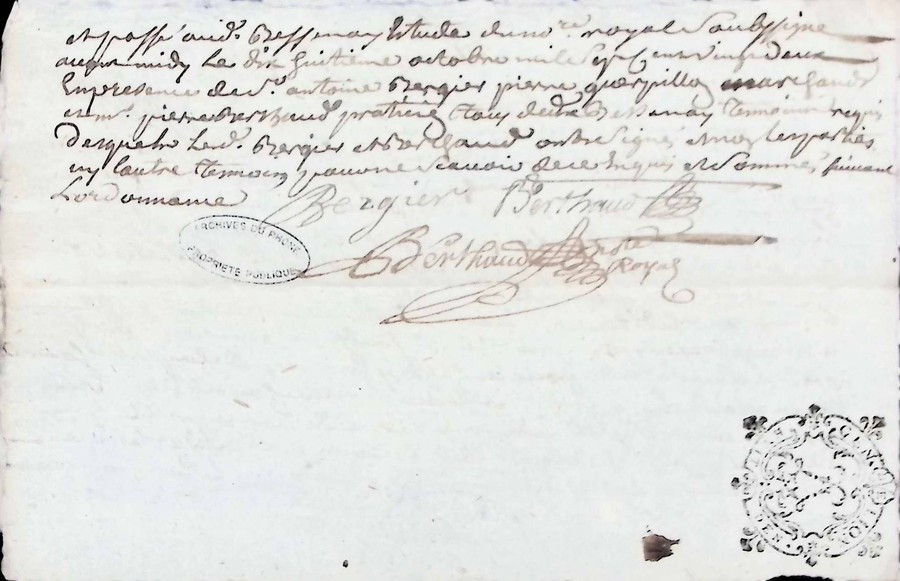 et passé aud. Bessenay Etude du no.re royal Soubsigne
avant midy le dix huitieme octobre mil Sept cent vingt deux
En presence de s.r antoine Bergier pierre marchands
et m.e pierre Berthaud praticien tous deux Bessenay temoins requis
Lesquels Led. Bergier et Berthaud ont Signé et non les parties
ny lautre temoin pour ne scavoir de ce Enquis et Sommés suivant
Lordonnance
Bergier Berthaud
Berthaud no.re Royal
ARCHIVES DU RHONE
PROPRIETE PUBLIQUE